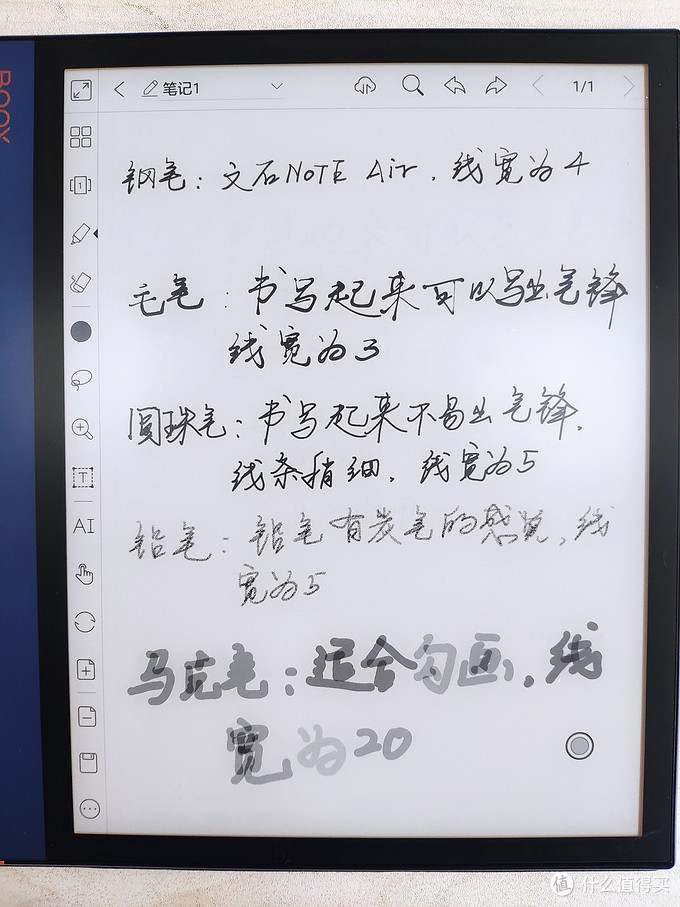 BOOX
笔记1
1/1
1
T
AI
钢笔：文石NOTE Air，线宽为4
毛笔：书写起来可以写出笔锋
线宽为3
圆珠笔：书写起来不易出笔锋，
线条稍细，线宽为5
铅笔：铅笔有炭笔的感觉，线
宽为5
马克笔：适合勾画，线
宽为20
值 什么值得买